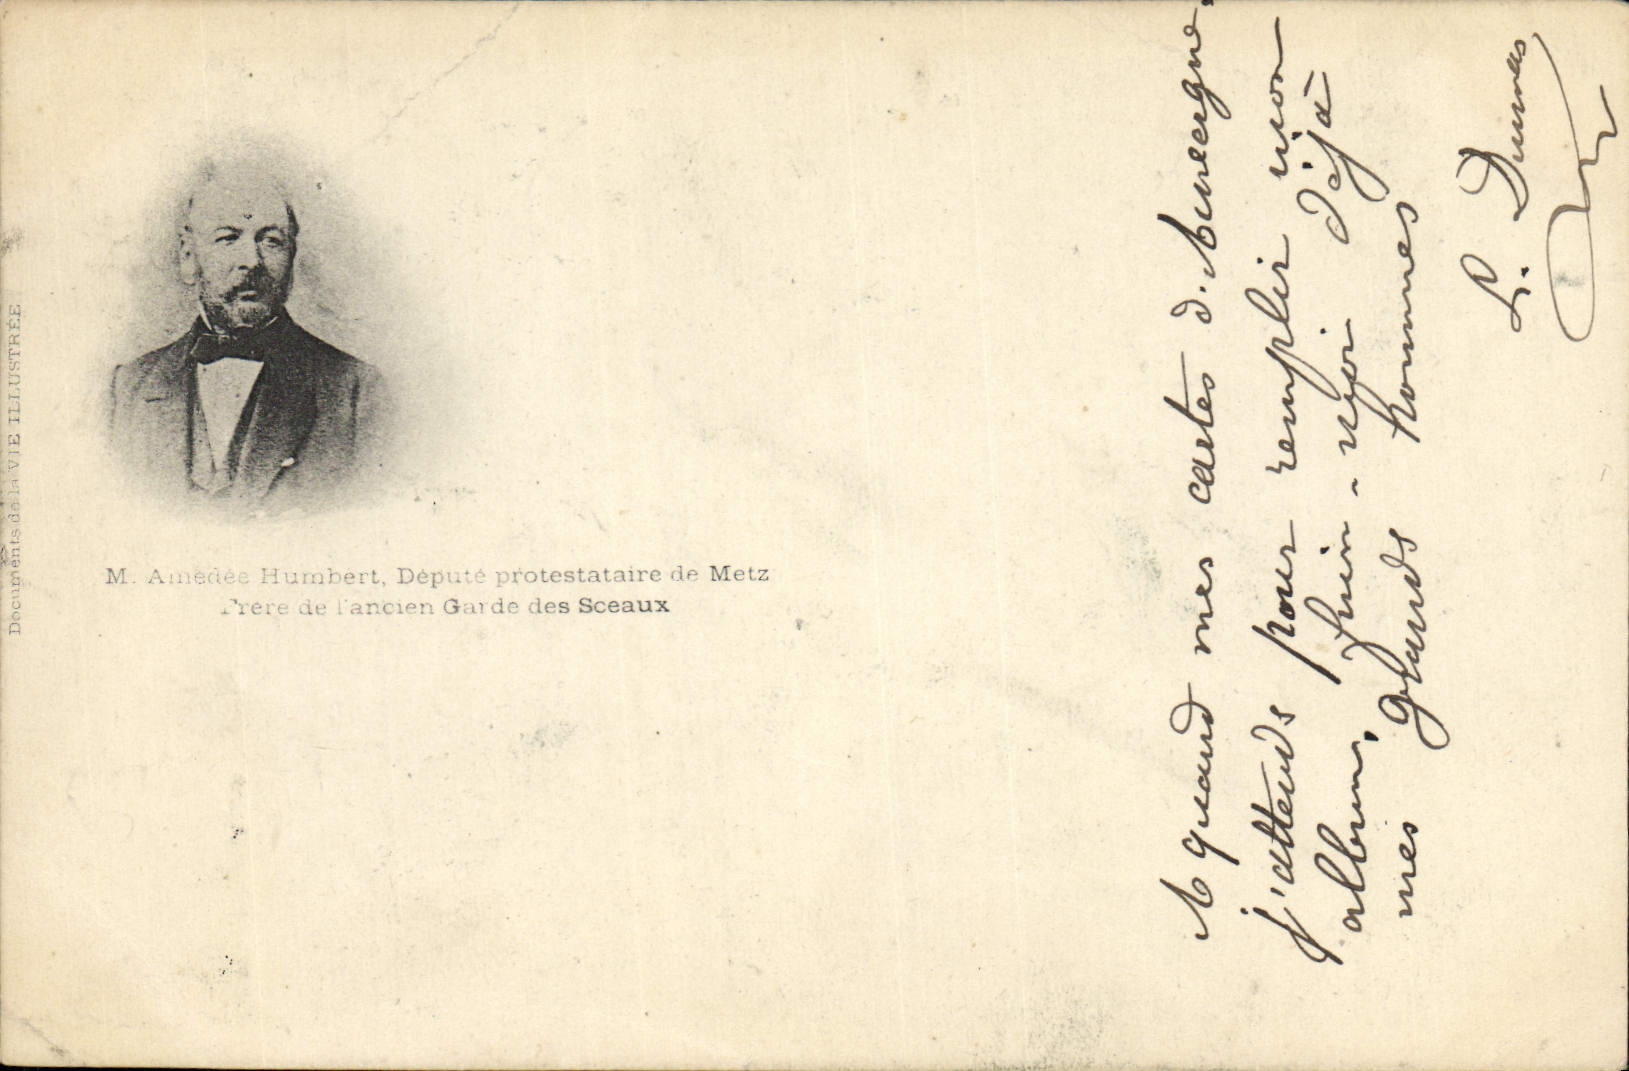 Documents de la VIE ILLUSTRÉE
M. Amédée Humbert, Député protestataire de Metz
Frère de l'ancien Garde des Sceaux
A quand mes cartes d'Auvergne,
j'attends pour remplir mon
album, fuin - moi déjà
mes grands hommes
L. Dumas